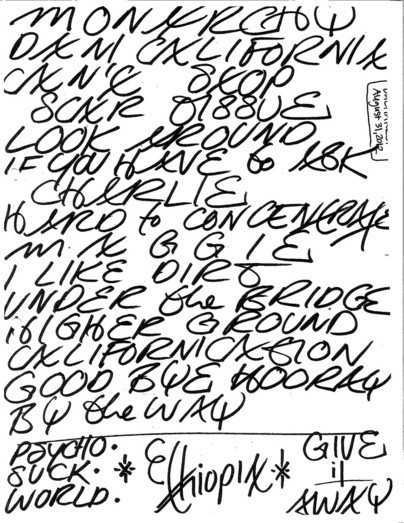 MONARCHY
DANI CALIFORNIA
CAN'T STOP
SCAR TISSUE
LOOK AROUND
IF YOU HAVE to ASK
CHARLIE
HARD to CONCENTRATE
MAGGIE
I LIKE DIRT
UNDER the BRIDGE
HIGHER GROUND
CALIFORNICATION
GOOD BYE HOORAY
BY the WAY
PSYCHO.
SUCK.
WORLD.
* Ethiopia *
GIVE
it
AWAY
August 31, 2012